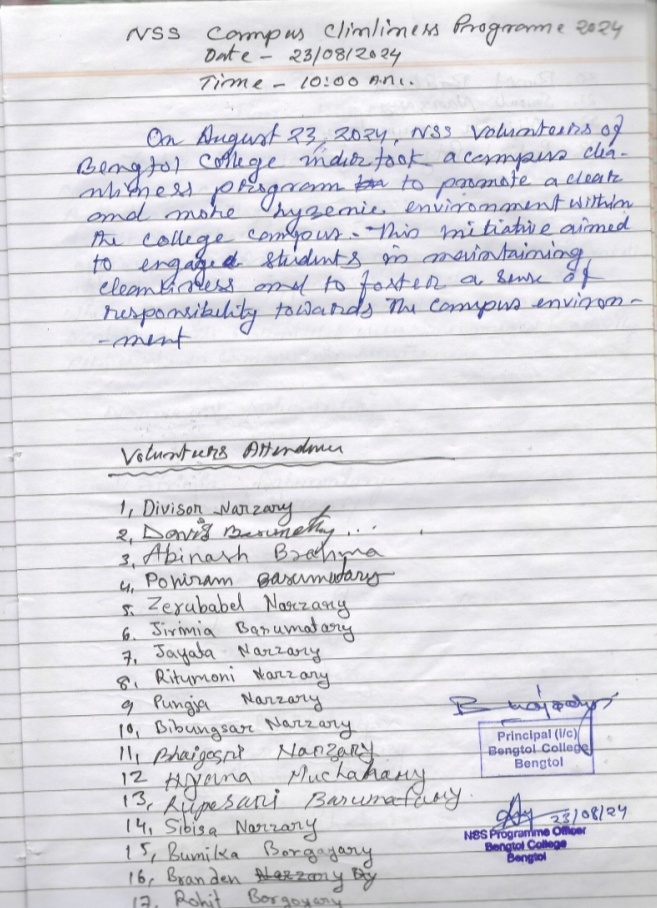 NSS Campus Climliness Programme 2024
Date - 23/08/2024
Time - 10:00 A.m.
On August 23, 2024, NSS Volunteers of
Bengtol College undertook a campus clea-
nliness program to promote a clean
and more hyzenic environment within
the college campus. This initiative aimed
to engaged students in maintaining
cleanliness and to foster a sense of
responsibility towards the campus environ-
-ment
Volunteers Attendance
1, Divison Narzary
2, David
3, Abinash Brahma
4, Poniram Basumatary
5. Zerubabel Narzary
6. Jirimia Basumatary
7, Jayata Narzary
8, Ritumoni Narzary
9 Pungja Narzary
10, Bibungsar Narzary
11, Bhaigosri Narzary
12 Muchahary
13, Rupesari Basumatary
14, Sibisa Narzary
15, Bumika Borgayary
16, Branden Narzary
17. Rohit Borgoyary
Principal (I/c)
Bengtol College
Bengtol
23/08/24
NSS Programme Officer
Bengtol College
Bengtol